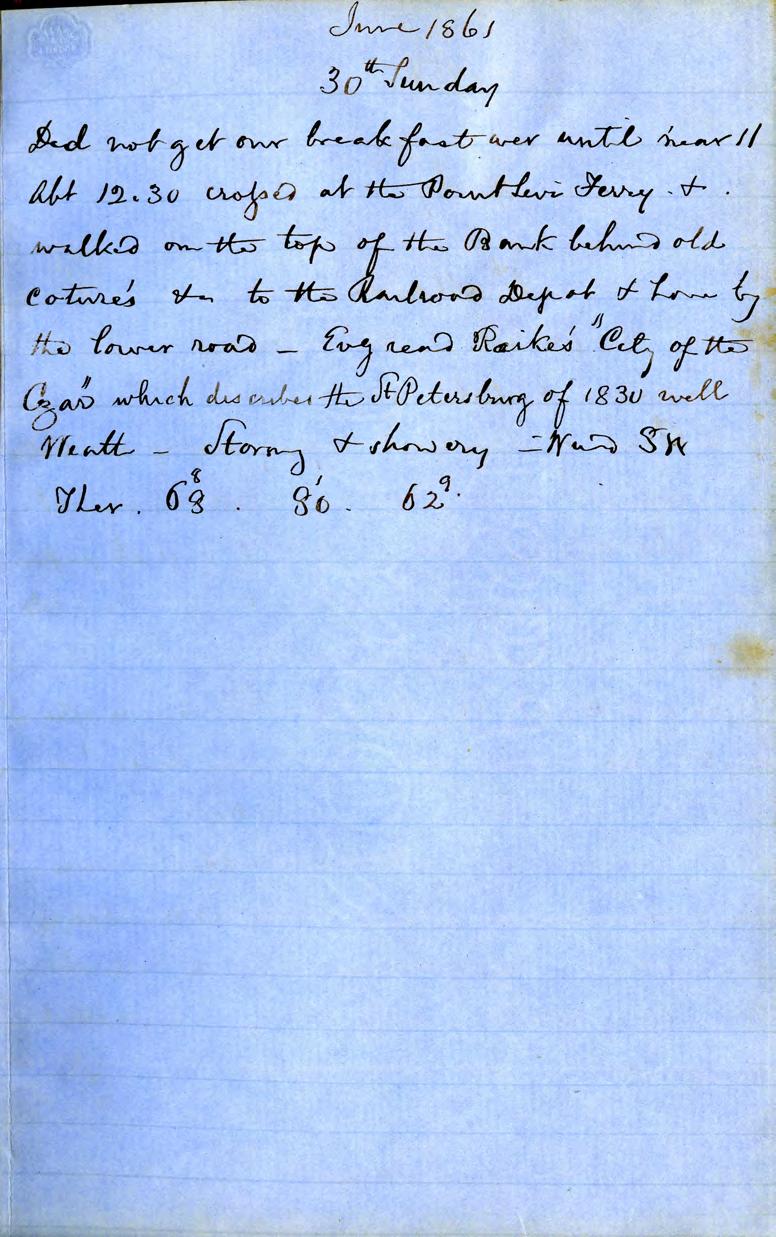 June 1861
30th Sunday
Did not get our breakfast over until near 11
Abt 12.30 crossed at the Point Levi Ferry &
walked on the top of the Bank behind old
to the Railroad Depot & home by
the lower road – Evg read Raikes' "City of the
Czar" which describes the St Petersburg of 1830 well
Weath – Stormy & showery – Wind SW
Ther. 68 . 80 . 62